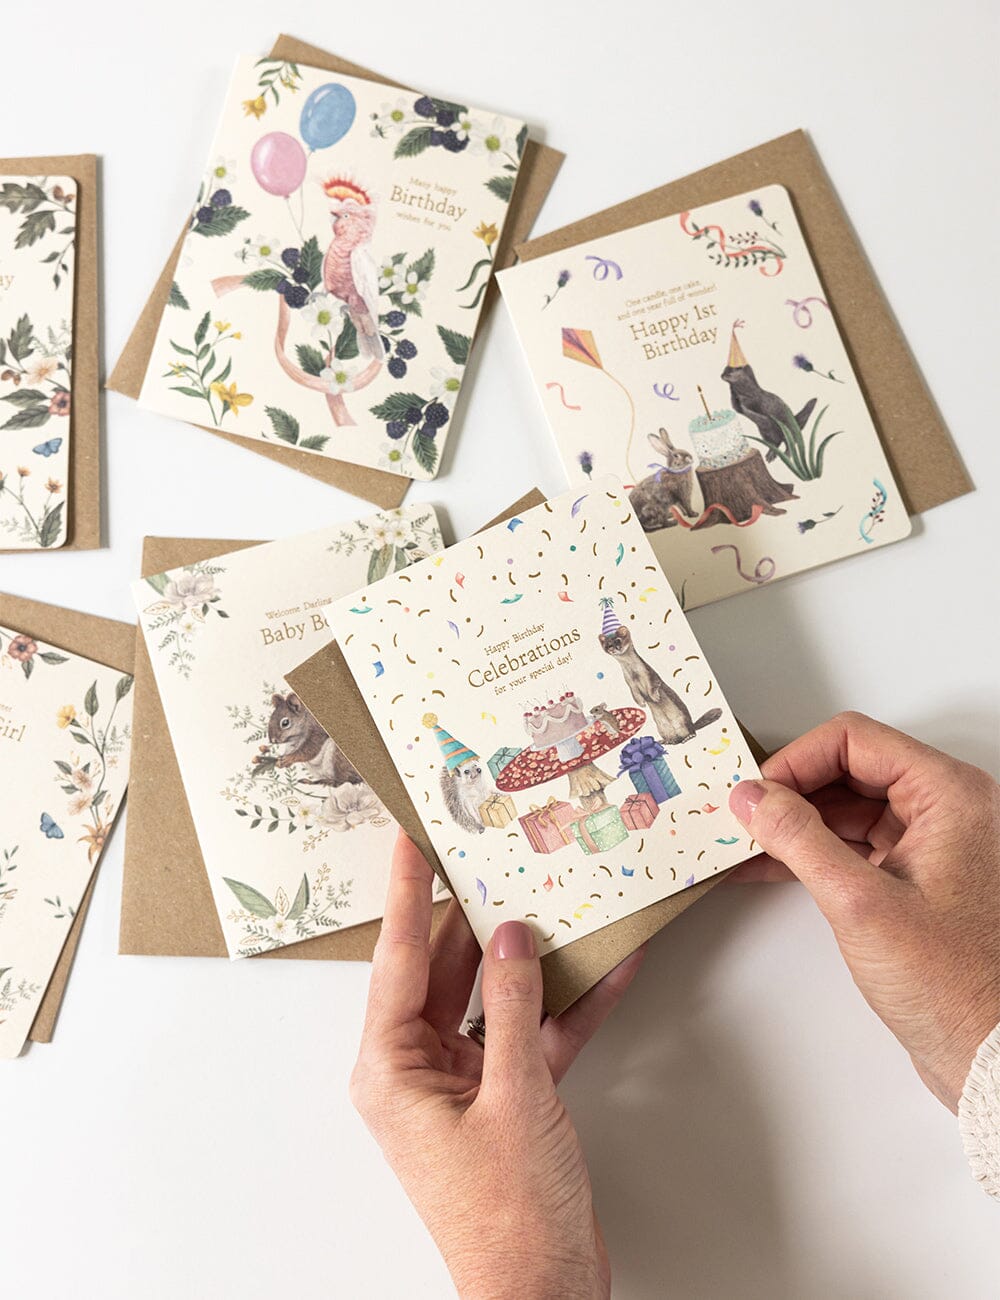 Many happy
Birthday
wishes for you
One candle, one cake,
and one year full of wonder!
Happy 1st
Birthday
Welcome Darling
Baby
Happy Birthday
Celebrations
for your special day!
Girl